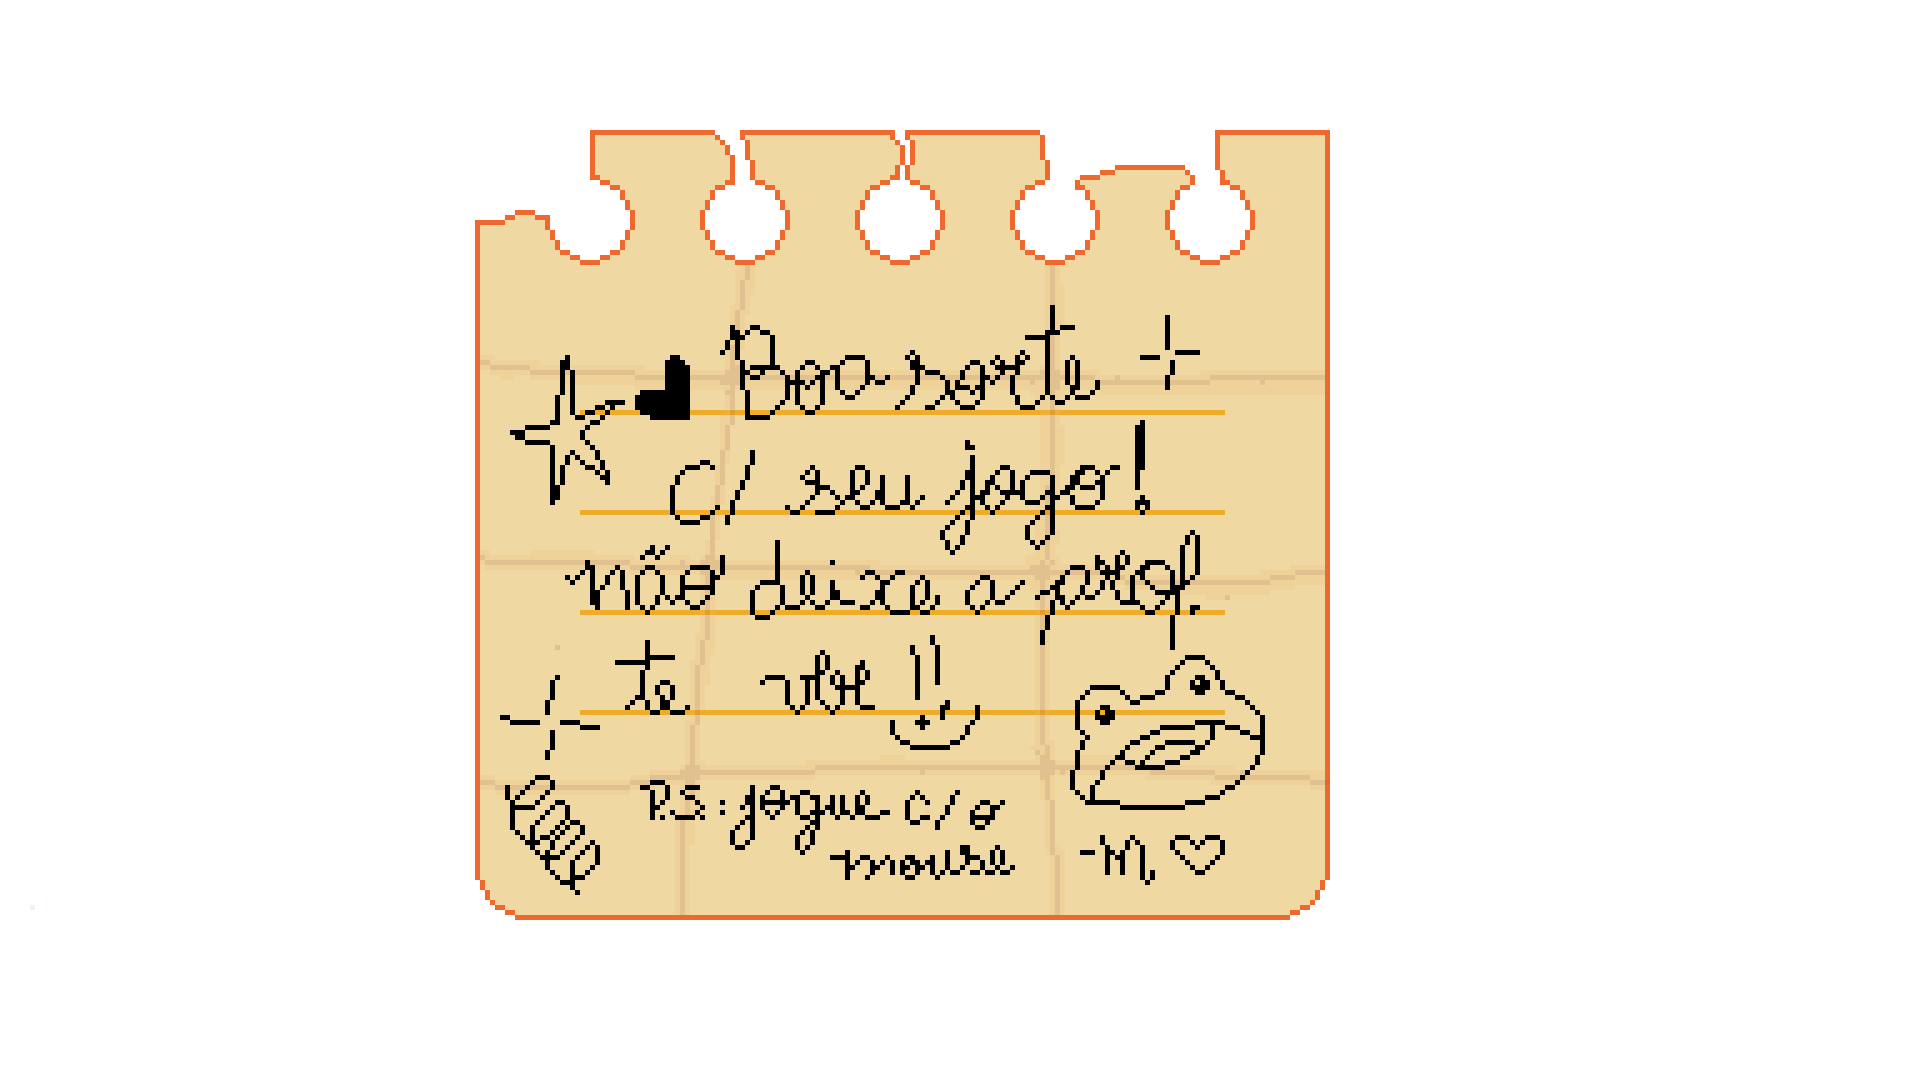 Boa sorte
c/ seu jogo!
não deixe a prof.
te ver!!
P.S.: jogue c/ o
mouse
-M